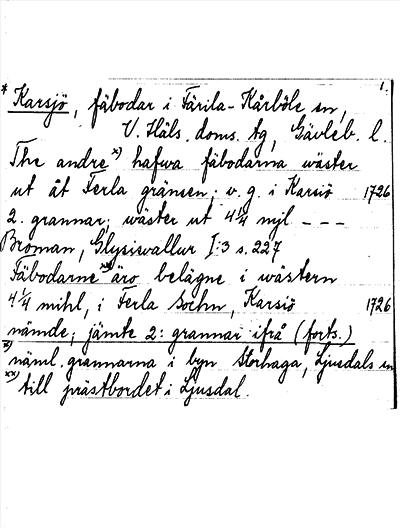 1.
* Karsjö, fäbodar i Färila-Kårböle sn,
V. Häls. doms. tg, Gävleb. l.
The andre x) hafwa fäbodarna wäster
ut åt Ferla gränsen; v. g. i Karsiö 1726
2. grannar; wäster ut 4 1/4 mjl - - -
Broman, Glysisvallur I:3 s. 227
Fäbodarne xx) äro belägne i wästern
4 1/4 mihl, i Ferla Sochn, Karsiö 1726
nämde; jämte 2: grannar ifrå (forts.)
x) näml. grannarna i byn Storhaga, Ljusdals sn
xx) till prästbordet i Ljusdal.